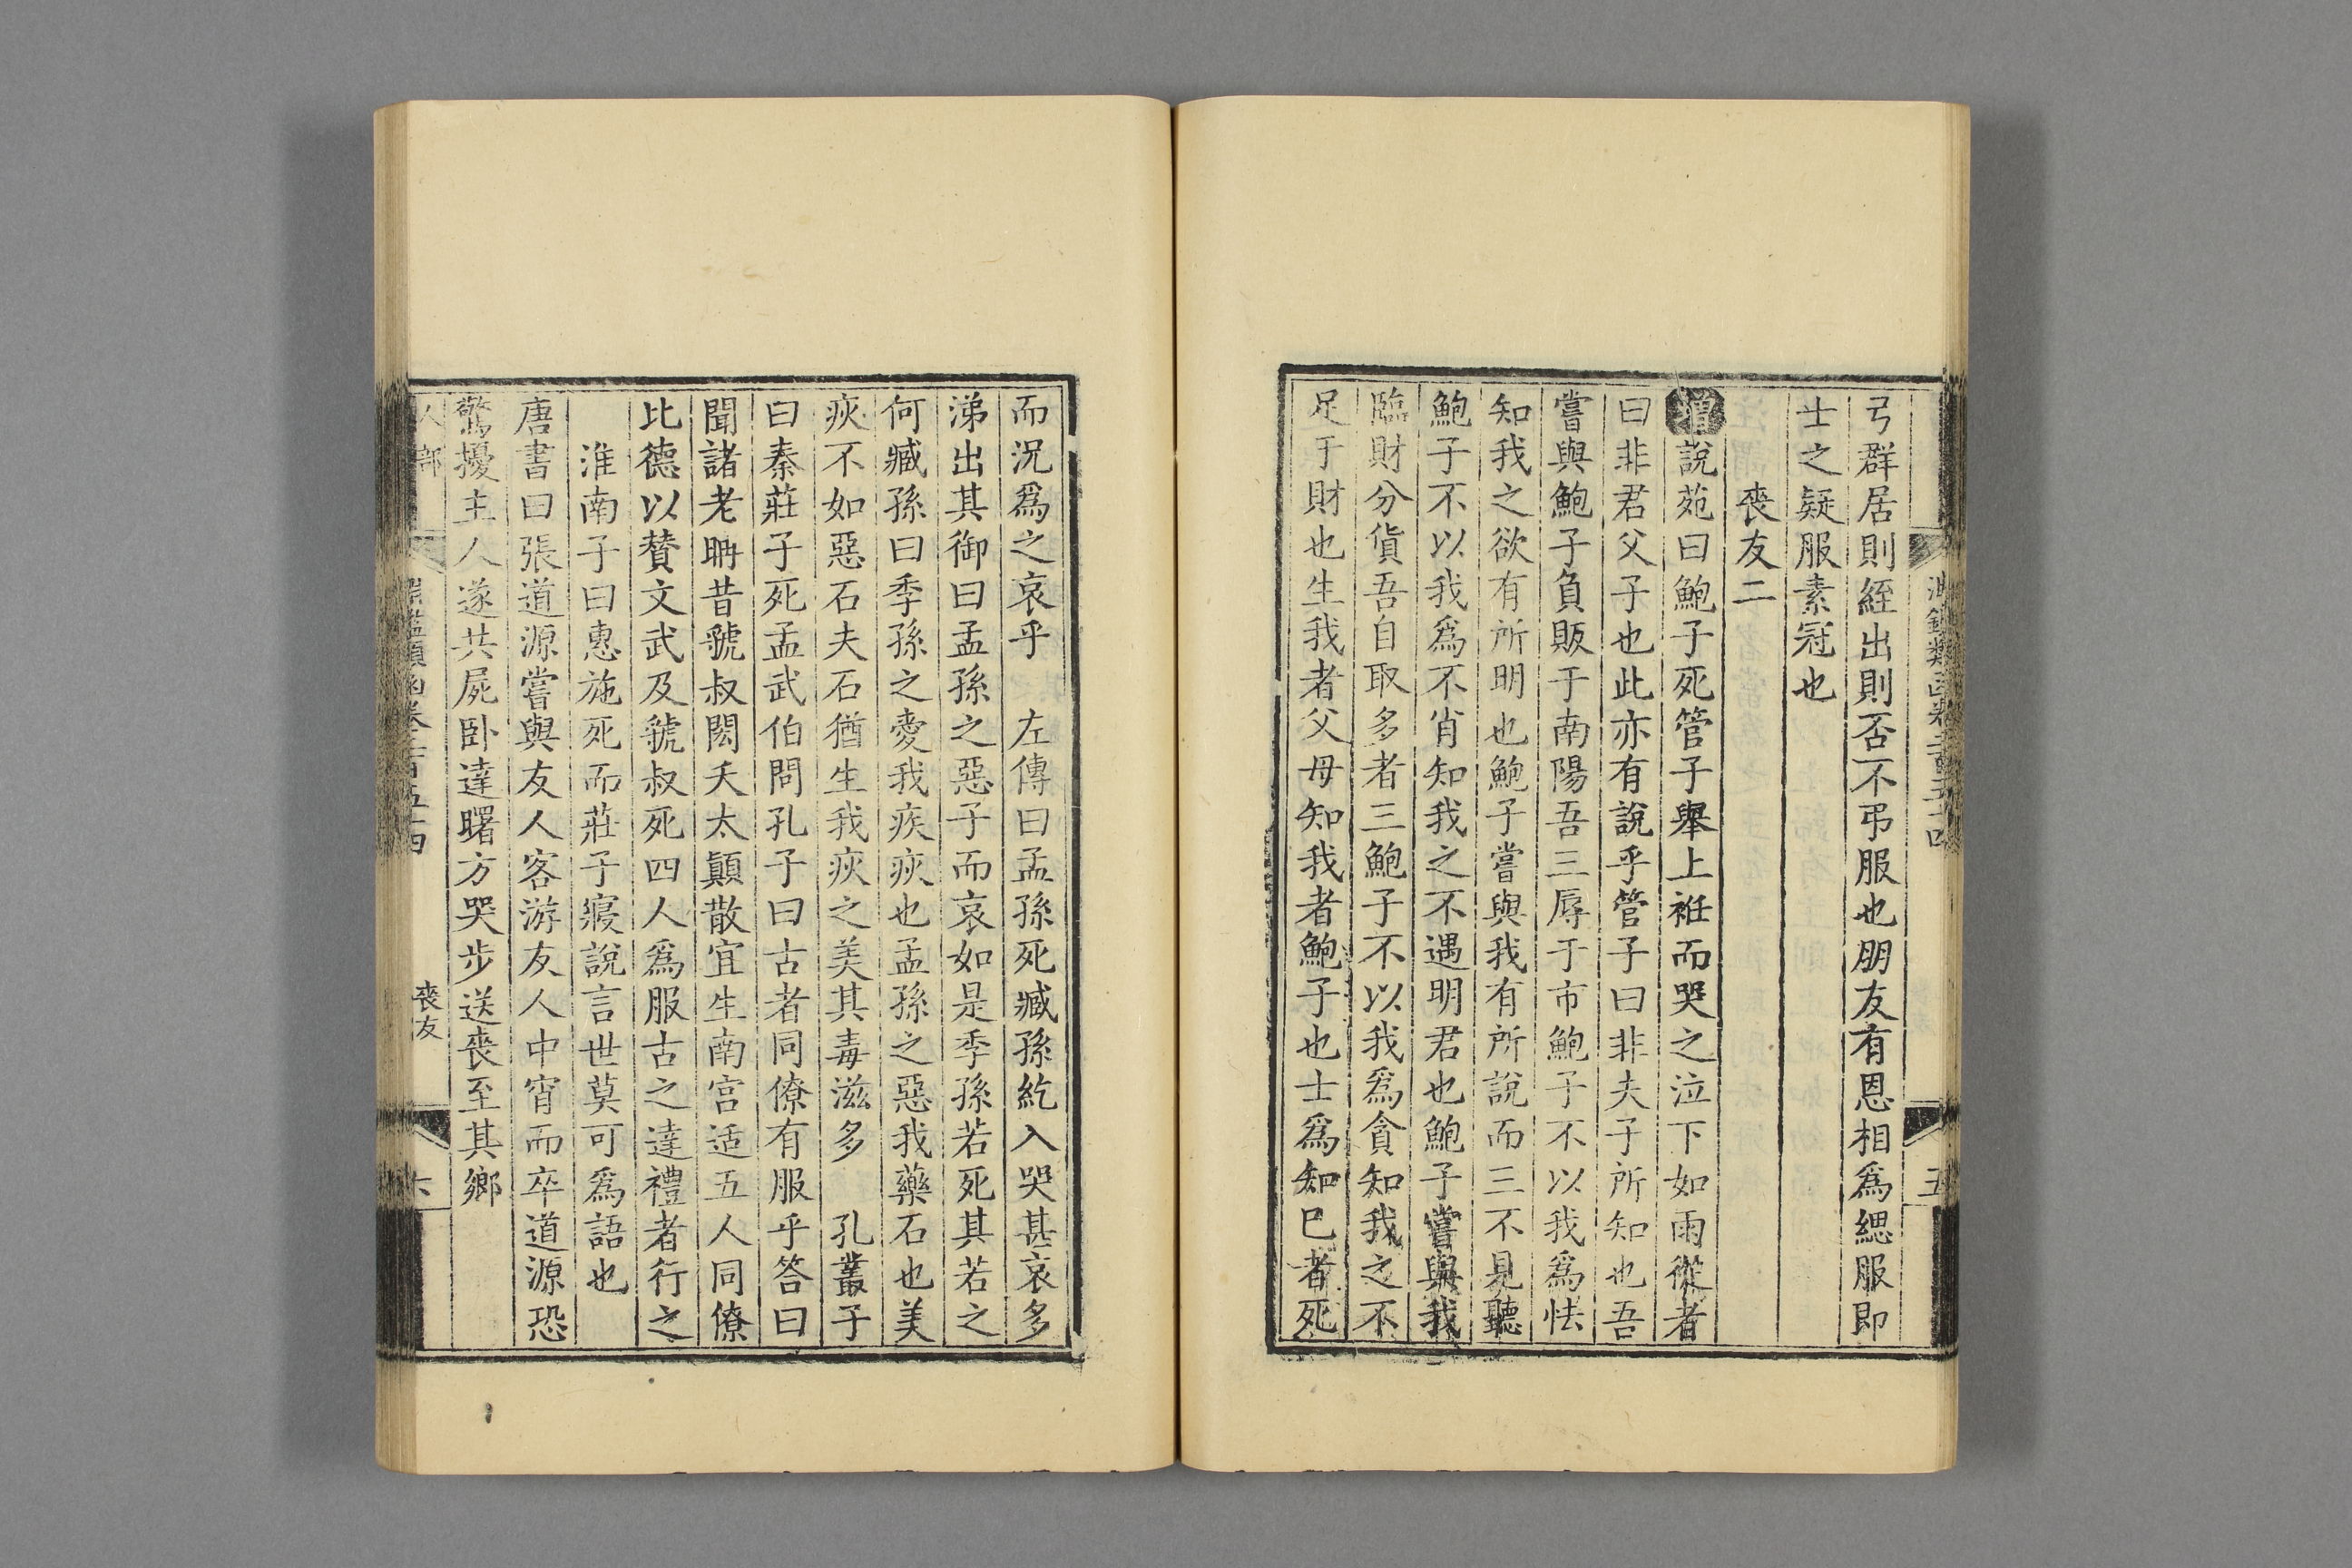 弓群居則絰出則否不弔服也朋友有恩相爲緦服即
士之疑服素冠也
喪友二
增說苑曰鮑子死管子舉上袵而哭之泣下如雨從者
曰非君父子也此亦有說乎管子曰非夫子所知也吾
嘗與鮑子負販于南陽吾三辱于市鮑子不以我爲怯
知我之欲有所明也鮑子嘗與我有所說而三不見聽
鮑子不以我爲不肖知我之不遇明君也鮑子嘗與我
臨財分貨吾自取多者三鮑子不以我爲貪知我之不
足于財也生我者父母知我者鮑子也士爲知巳者死
而況爲之哀乎 左傳曰孟孫死臧孫紇入哭甚哀多
涕出其御曰孟孫之惡子而哀如是季孫若死其若之
何臧孫曰季孫之愛我疾疢也孟孫之惡我藥石也美
疢不如惡石夫石猶生我疢之美其毒滋多 孔叢子
曰秦莊子死孟武伯問孔子曰古者同僚有服乎答曰
聞諸老聃昔虢叔閎夭太顚散宜生南宮适五人同僚
比德以贊文武及虢叔死四人爲服古之達禮者行之
淮南子曰惠施死而莊子寢說言世莫可爲語也
唐書曰張道源嘗與友人客游友人中宵而卒道源恐
驚擾主人遂共屍卧達曙方哭步送喪至其鄉
人部
淵鑑類函卷二百五十四
喪友
六